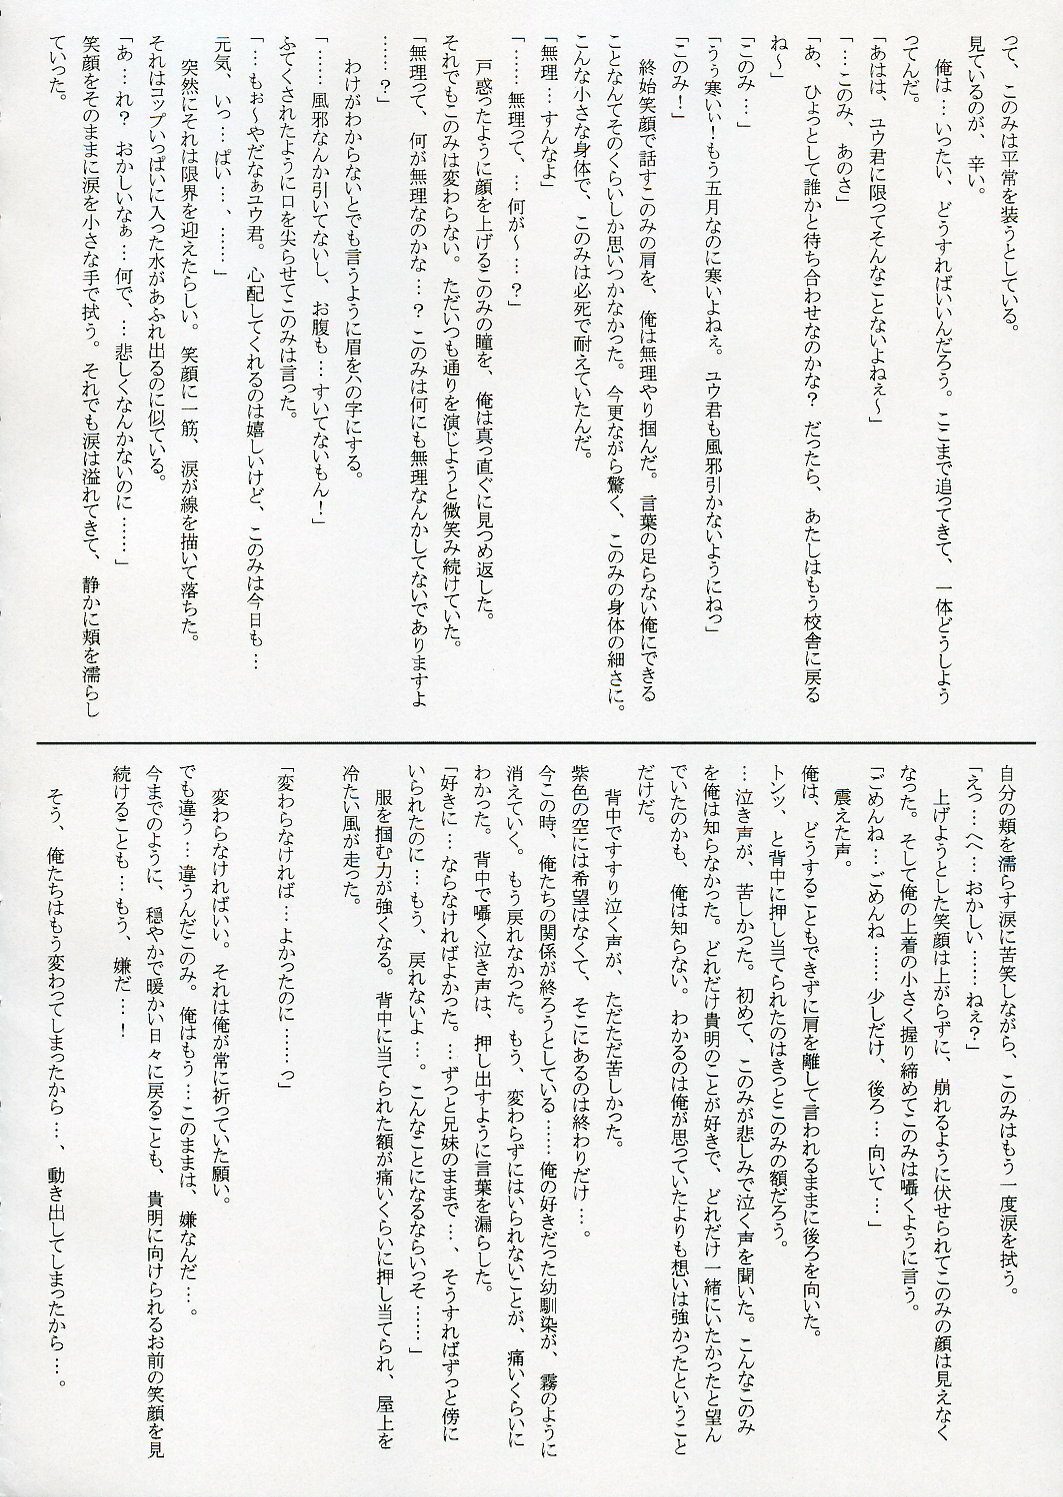 って、このみは平常を装うとしている。
見ているのが、辛い。
俺は…いったい、どうすればいいんだろう。ここまで追ってきて、一体どうしよう
ってんだ。
「あはは、ユウ君に限ってそんなことないよねぇ～」
「…このみ、あのさ」
「あ、ひょっとして誰かと待ち合わせなのかな？　だったら、あたしはもう校舎に戻る
ね～」
「このみ…」
「うぅ寒いぃ！もう五月なのに寒いよねぇ。ユウ君も風邪引かないようにねっ」
「このみ！」
終始笑顔で話すこのみの肩を、俺は無理やり掴んだ。言葉の足らない俺にできる
ことなんてそのくらいしか思いつかなかった。今更ながら驚く、このみの身体の細さに。
こんな小さな身体で、このみは必死で耐えていたんだ。
「無理…すんなよ」
「……無理って、…何が～…？」
戸惑ったように顔を上げるこのみの瞳を、俺は真っ直ぐに見つめ返した。
それでもこのみは変わらない。ただいつも通りを演じようと微笑み続けていた。
「無理って、何が無理なのかな…？このみは何にも無理なんかしてないでありますよ
……？」
わけがわからないとでも言うように眉をハの字にする。
「……風邪なんか引いてないし、お腹も…すいてないもん！」
ふてくされたように口を尖らせてこのみは言った。
「…もぉ～やだなぁユウ君。心配してくれるのは嬉しいけど、このみは今日も…
元気、いっ…ぱい…、……」
突然にそれは限界を迎えたらしい。笑顔に一筋、涙が線を描いて落ちた。
それはコップいっぱいに入った水があふれ出るのに似ている。
「あ…れ？　おかしいなぁ…何で、…悲しくなんかないのに……」
笑顔をそのままに涙を小さな手で拭う。それでも涙は溢れてきて、静かに頬を濡らし
ていった。
自分の頬を濡らす涙に苦笑しながら、このみはもう一度涙を拭う。
「えっ…へへ…おかしい……ねぇ？」
上げようとした笑顔は上がらずに、崩れるように伏せられてこのみの顔は見えなく
なった。そして俺の上着の小さく握り締めてこのみは囁くように言う。
「ごめんね…ごめんね……少しだけ、後ろ…向いて…」
震えた声。
俺は、どうすることもできずに肩を離して言われるままに後ろを向いた。
トンッ、と背中に押し当てられたのはきっとこのみの額だろう。
…泣き声が、苦しかった。初めて、このみが悲しみで泣く声を聞いた。こんなこのみ
を俺は知らなかった。どれだけ貴明のことが好きで、どれだけ一緒にいたかったと望ん
でいたのかも、俺は知らない。わかるのは俺が思っていたよりも想いは強かったということ
だけだ。
背中ですすり泣く声が、ただただ苦しかった。
紫色の空には希望はなくて、そこにあるのは終わりだけ…。
今この時、俺たちの関係が終ろうとしている……俺の好きだった幼馴染が、霧のように
消えていく。もう戻れなかった。もう、変わらずにはいられないことが、痛いくらいに
わかった。背中で囁く泣き声は、押し出すように言葉を漏らした。
「好きに…ならなければよかった。…ずっと兄妹のままで…、そうすればずっと傍に
いられたのに…もう、戻れないよ…。こんなことになるならいっそ……」
服を掴む力が強くなる。背中に当てられた額が痛いくらいに押し当てられ、屋上を
冷たい風が走った。
「変わらなければ…よかったのに……っ」
変わらなければいい。それは俺が常に祈っていた願い。
でも違う…違うんだこのみ。俺はもう…このままは、嫌なんだ…。
今までのように、穏やかで暖かい日々に戻ることも、貴明に向けられるお前の笑顔を見
続けることも…もう、嫌だ…！
そう、俺たちはもう変わってしまったから…、動き出してしまったから…。